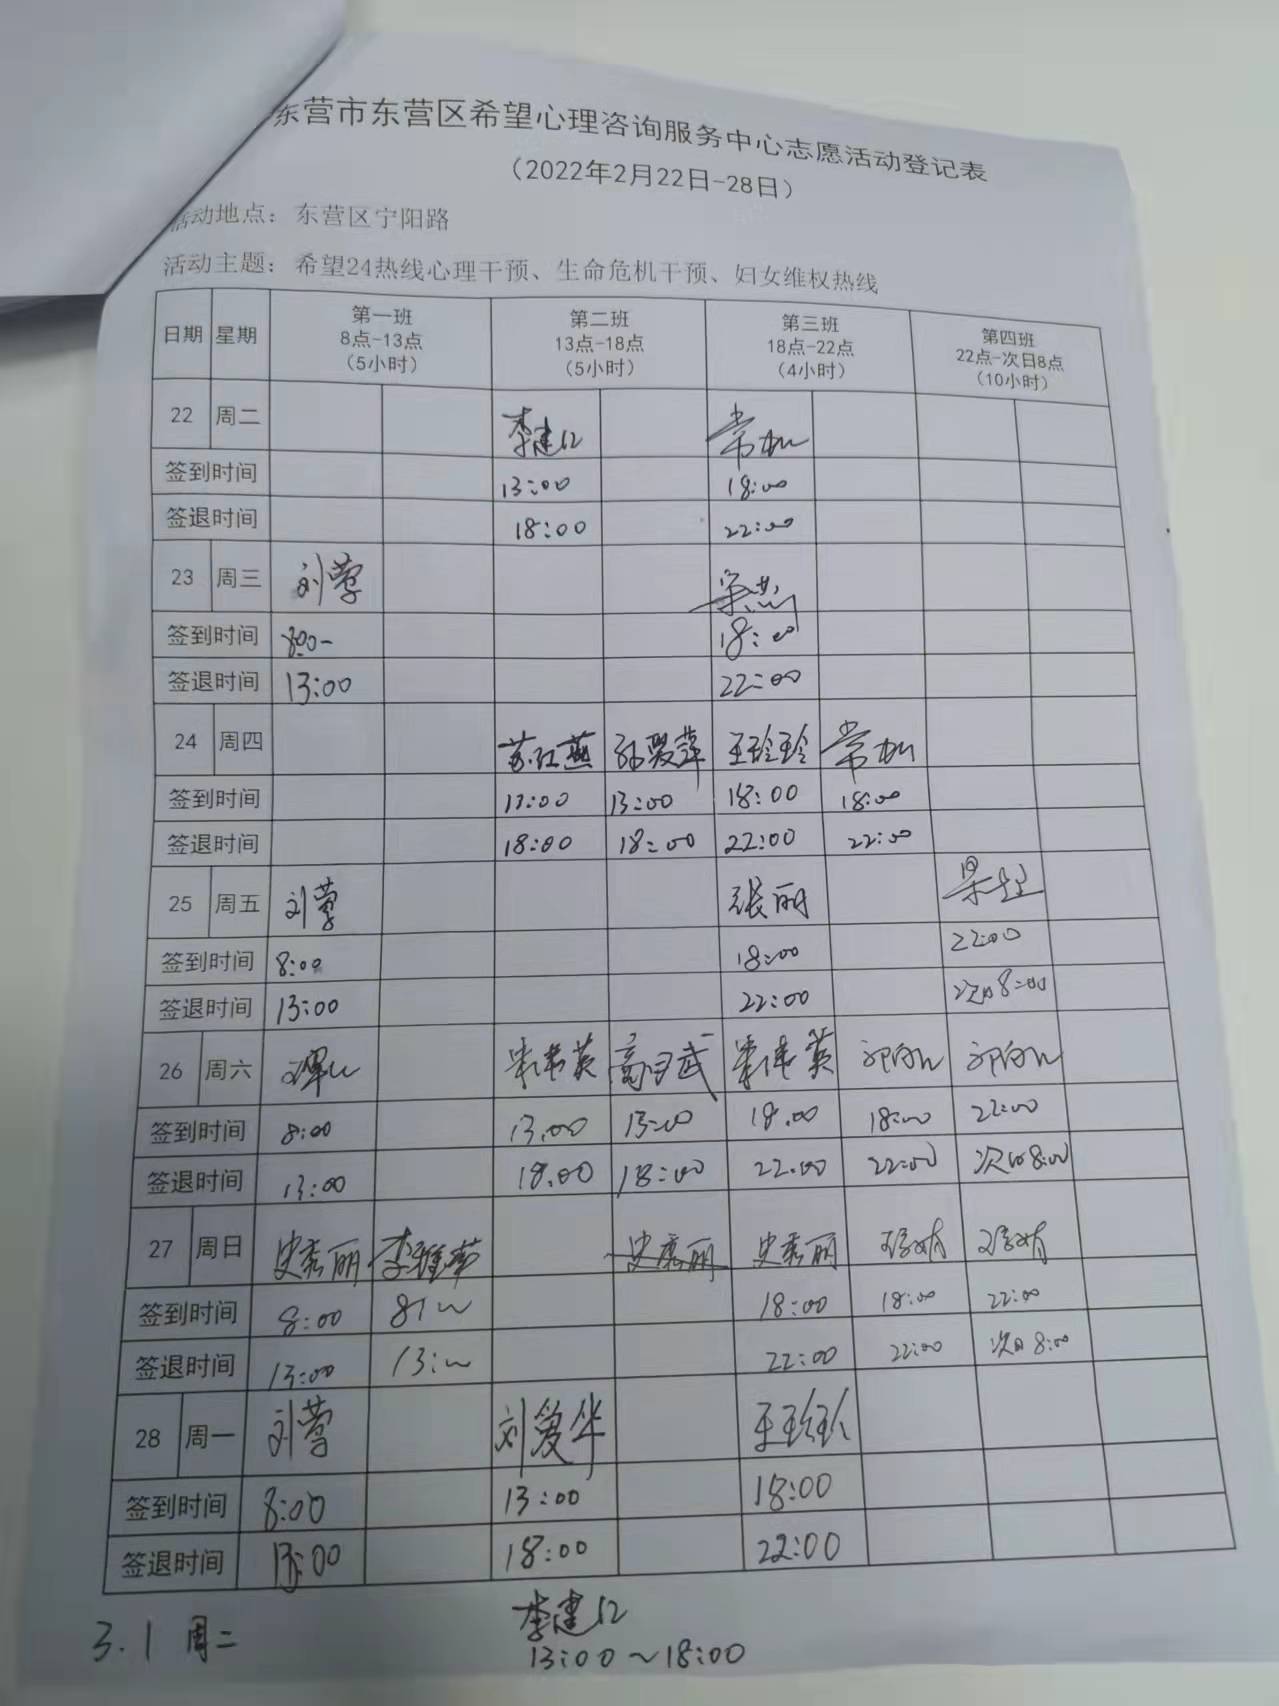 东营市东营区希望心理咨询服务中心志愿活动登记表
（2022年2月22日-28日）
活动地点：东营区宁阳路
活动主题：希望24热线心理干预、生命危机干预、妇女维权热线
日期 星期 第一班 8点-13点 （5小时） 第二班 13点-18点 （5小时） 第三班 18点-22点 （4小时） 第四班 22点-次日8点 （10小时）
22 周二 李建
签到时间 13:00 18:00
签退时间 18:00 22:00
23 周三 刘莺
签到时间 8:00 18:00
签退时间 13:00 22:00
24 周四 苏红燕 孙翠萍 王玲玲
签到时间 13:00 13:00 18:00 18:00
签退时间 18:00 18:00 22:00 22:00
25 周五 刘莺 张丽
签到时间 8:00 18:00 22:00
签退时间 13:00 22:00 次日8:00
26 周六 宋伟英 宋伟英
签到时间 8:00 13.00 13:00 18.00 18:00 22:00
签退时间 13:00 18.00 18:00 22.00 22:00 次日8:00
27 周日 史秀丽 李雅萍 史秀丽 史秀丽
签到时间 8:00 8:00 18:00 18:00 22:00
签退时间 13:00 13:00 22:00 22:00 次日8:00
28 周一 刘莺 刘爱华 王玲玲
签到时间 8:00 13:00 18:00
签退时间 13:00 18:00 22:00
3.1 周二 李建
13:00～18:00